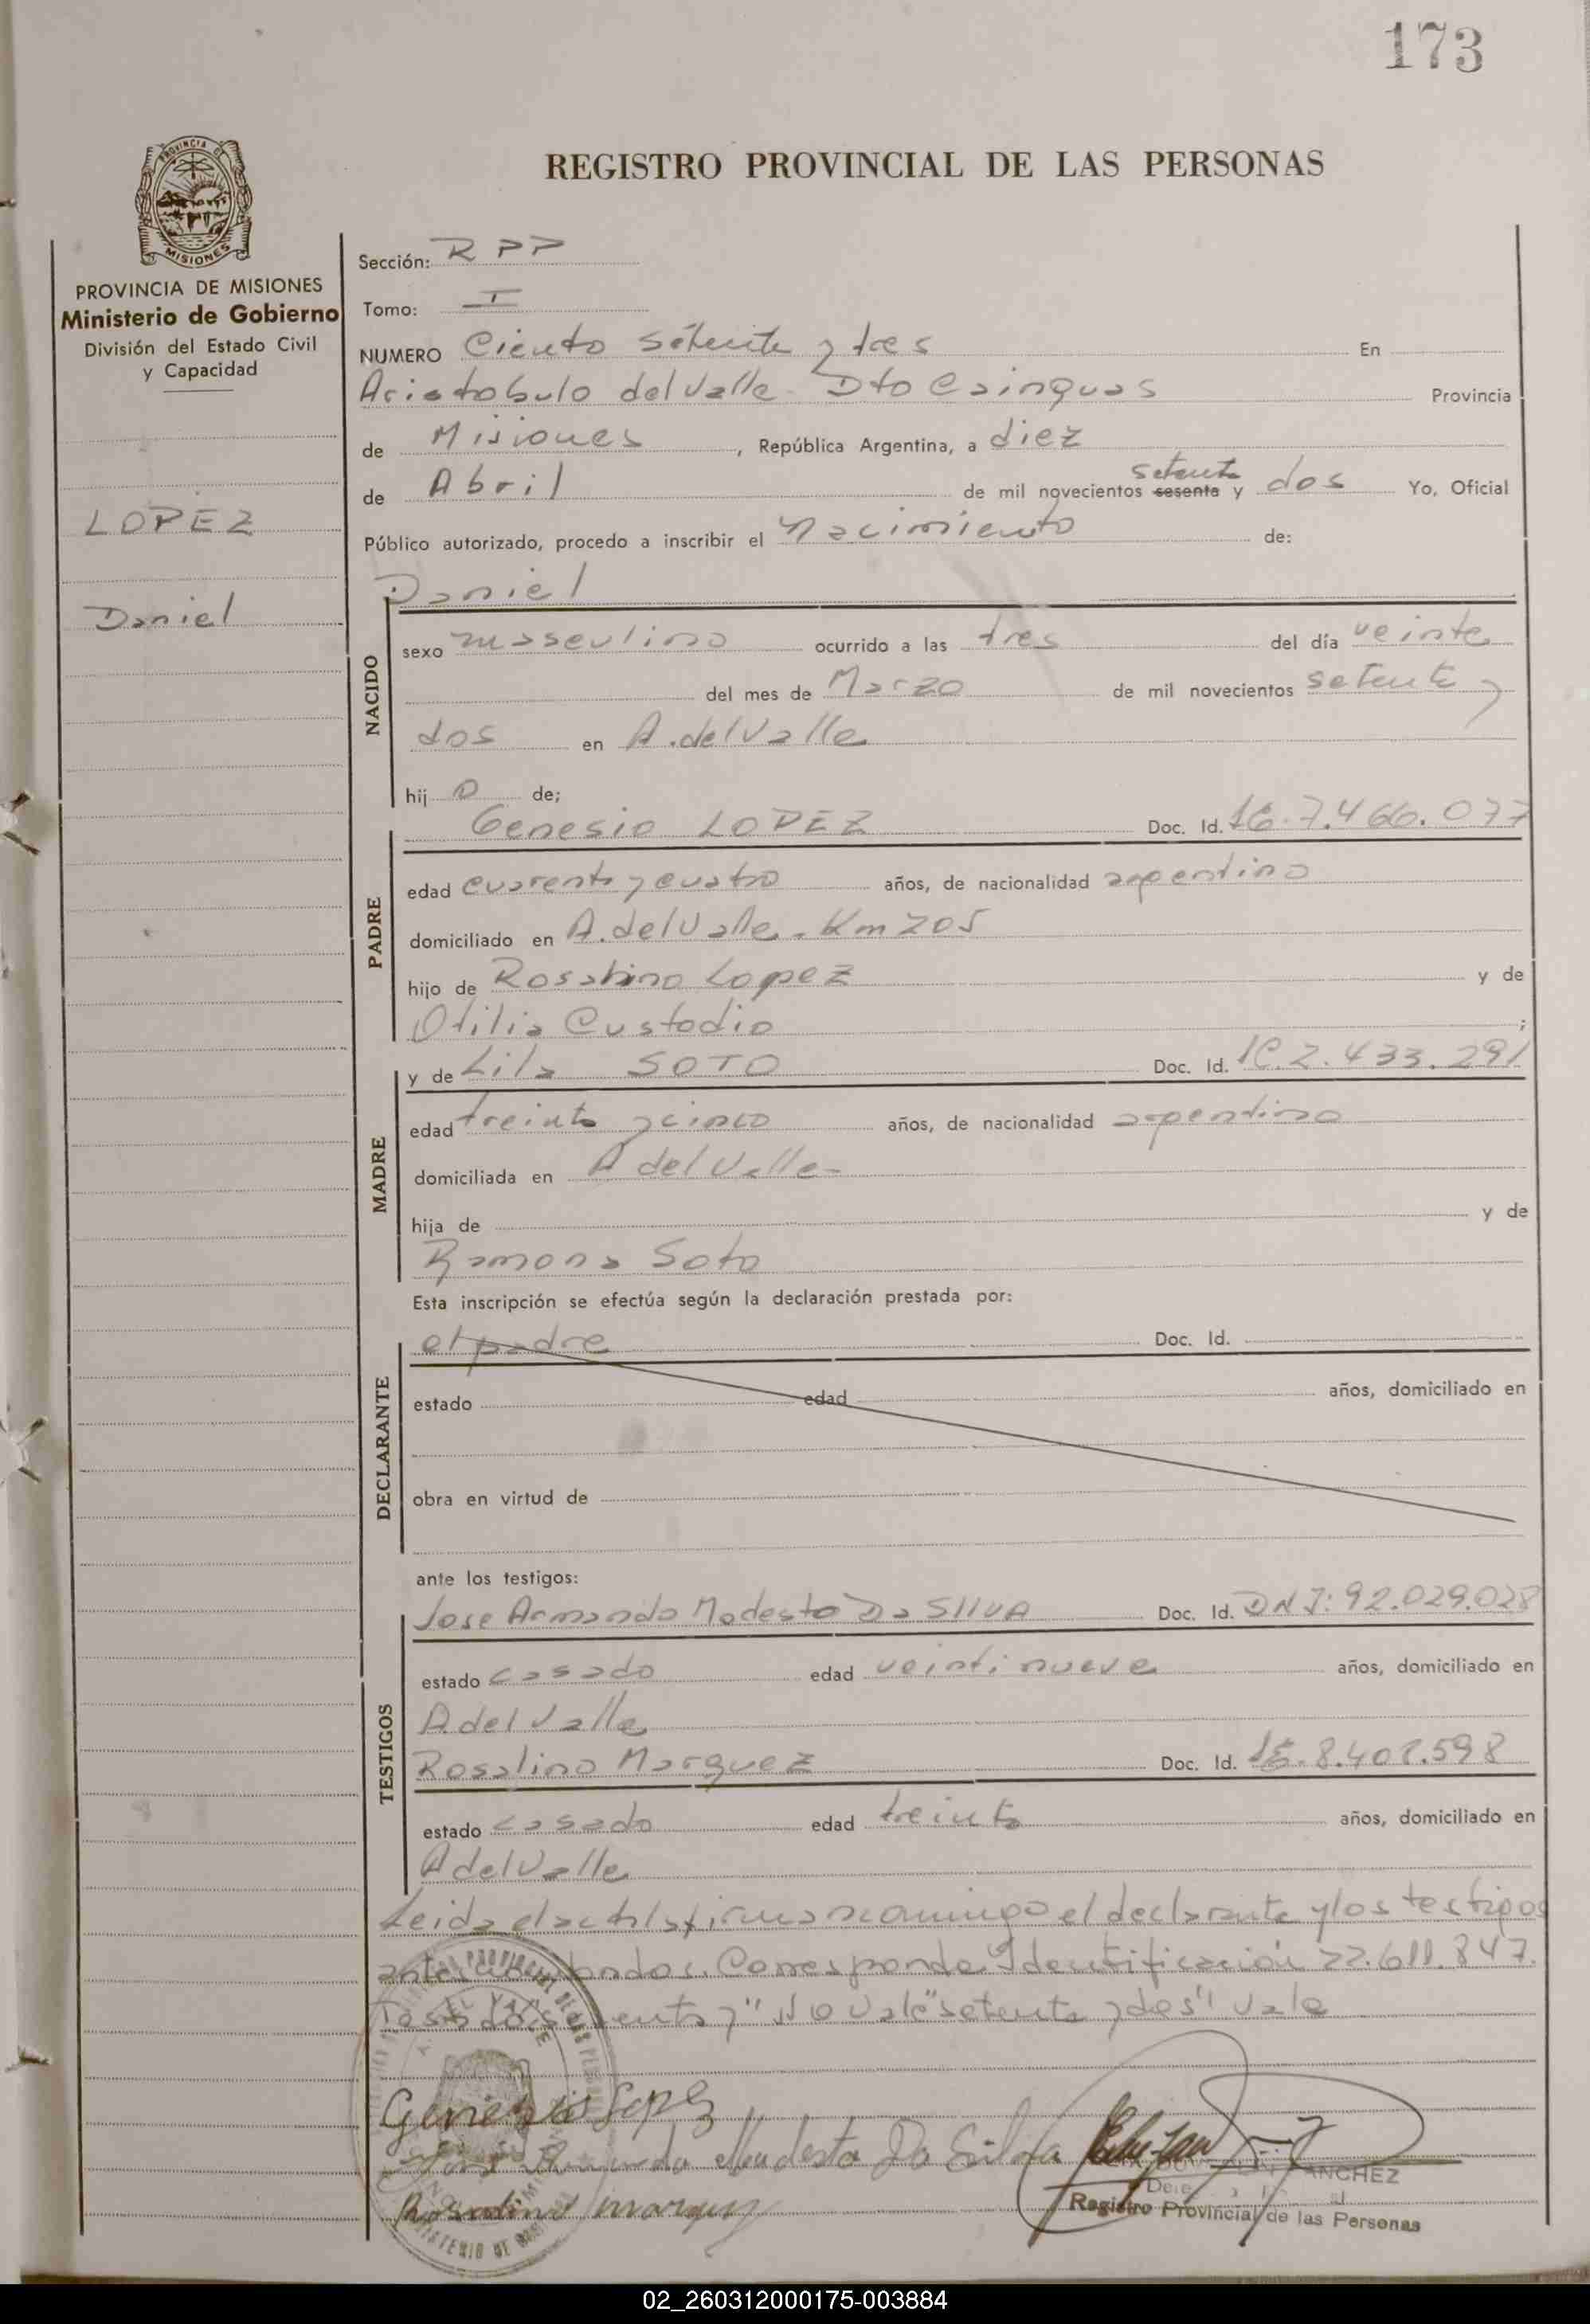 173
PROVINCIA DE
MISIONES
REGISTRO PROVINCIAL DE LAS PERSONAS
PROVINCIA DE MISIONES
Ministerio de Gobierno
División del Estado Civil
y Capacidad
LOPEZ
Daniel
Sección: R P P
Tomo: I
NUMERO Ciento setenta y tres En
Aristobulo del Valle - Dto Cainguas Provincia
de Misiones, República Argentina, a diez
setenta
de Abril de mil novecientos sesenta y dos Yo, Oficial
Público autorizado, procedo a inscribir el Nacimiento de:
Daniel
NACIDO
sexo masculino ocurrido a las tres del día veinte
del mes de Marzo de mil novecientos setenta y
dos en A. del Valle
hij o de;
Genesio LOPEZ Doc. Id. 7.466.077
PADRE
edad cuarenta y cuatro años, de nacionalidad argentino
domiciliado en A. del Valle - Km 205
hijo de Rosalino Lopez y de
Otilia Custodio ;
y de Lila SOTO Doc. Id. 2.433.291
MADRE
edad treinta y cinco años, de nacionalidad argentina
domiciliada en A del Valle -
hija de y de
Ramona Soto
Esta inscripción se efectúa según la declaración prestada por:
el padre Doc. Id.
DECLARANTE
estado edad años, domiciliado en
obra en virtud de
ante los testigos:
Jose Armando Modesto Da SIlVA Doc. Id. DNI: 92.029.028
TESTIGOS
estado casado edad veintinueve años, domiciliado en
A del Valle
Rosalino Marquez Doc. Id. 8.401.598
estado casado edad treinta años, domiciliado en
A del Valle
Leida el acta la firman conmigo el declarante y los testigos
Corresponde Identificación 22.611.847.
y" No Vale "setenta y dos" Vale
Genezio Lopez
Jose Armando Modesto Da Silva
Rosalino Marquez
SANCHEZ
Registro Provincial de las Personas
02_260312000175-003884